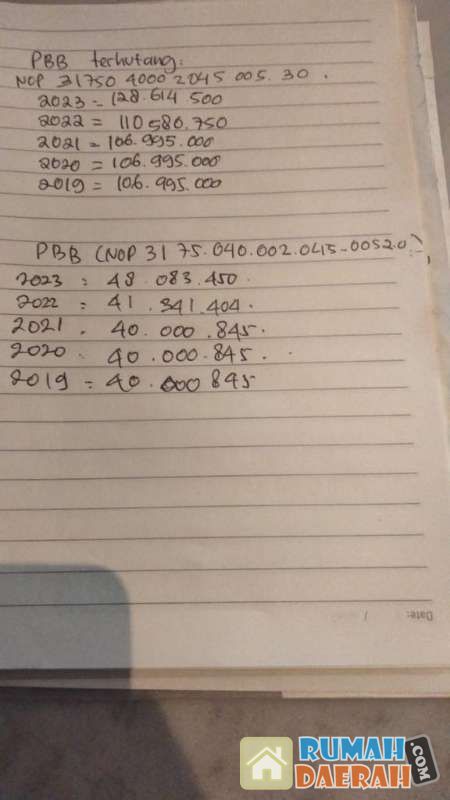 PBB terhutang:
NOP 31750 4000 2045 005.30.
2023 = 128.614 500
2022 = 110 580.750
2021 = 106.995.000
2020 = 106.995.000
2019 = 106.995.000
PBB (NOP 31 75.040.002.045-0052.0).
2023 : 48.083.450.
2022 : 41.341.404.
2021. 40.000.845.
2020. 40.000.845.
2019 = 40.000 845
Date: /
RUMAH
DAERAH.COM